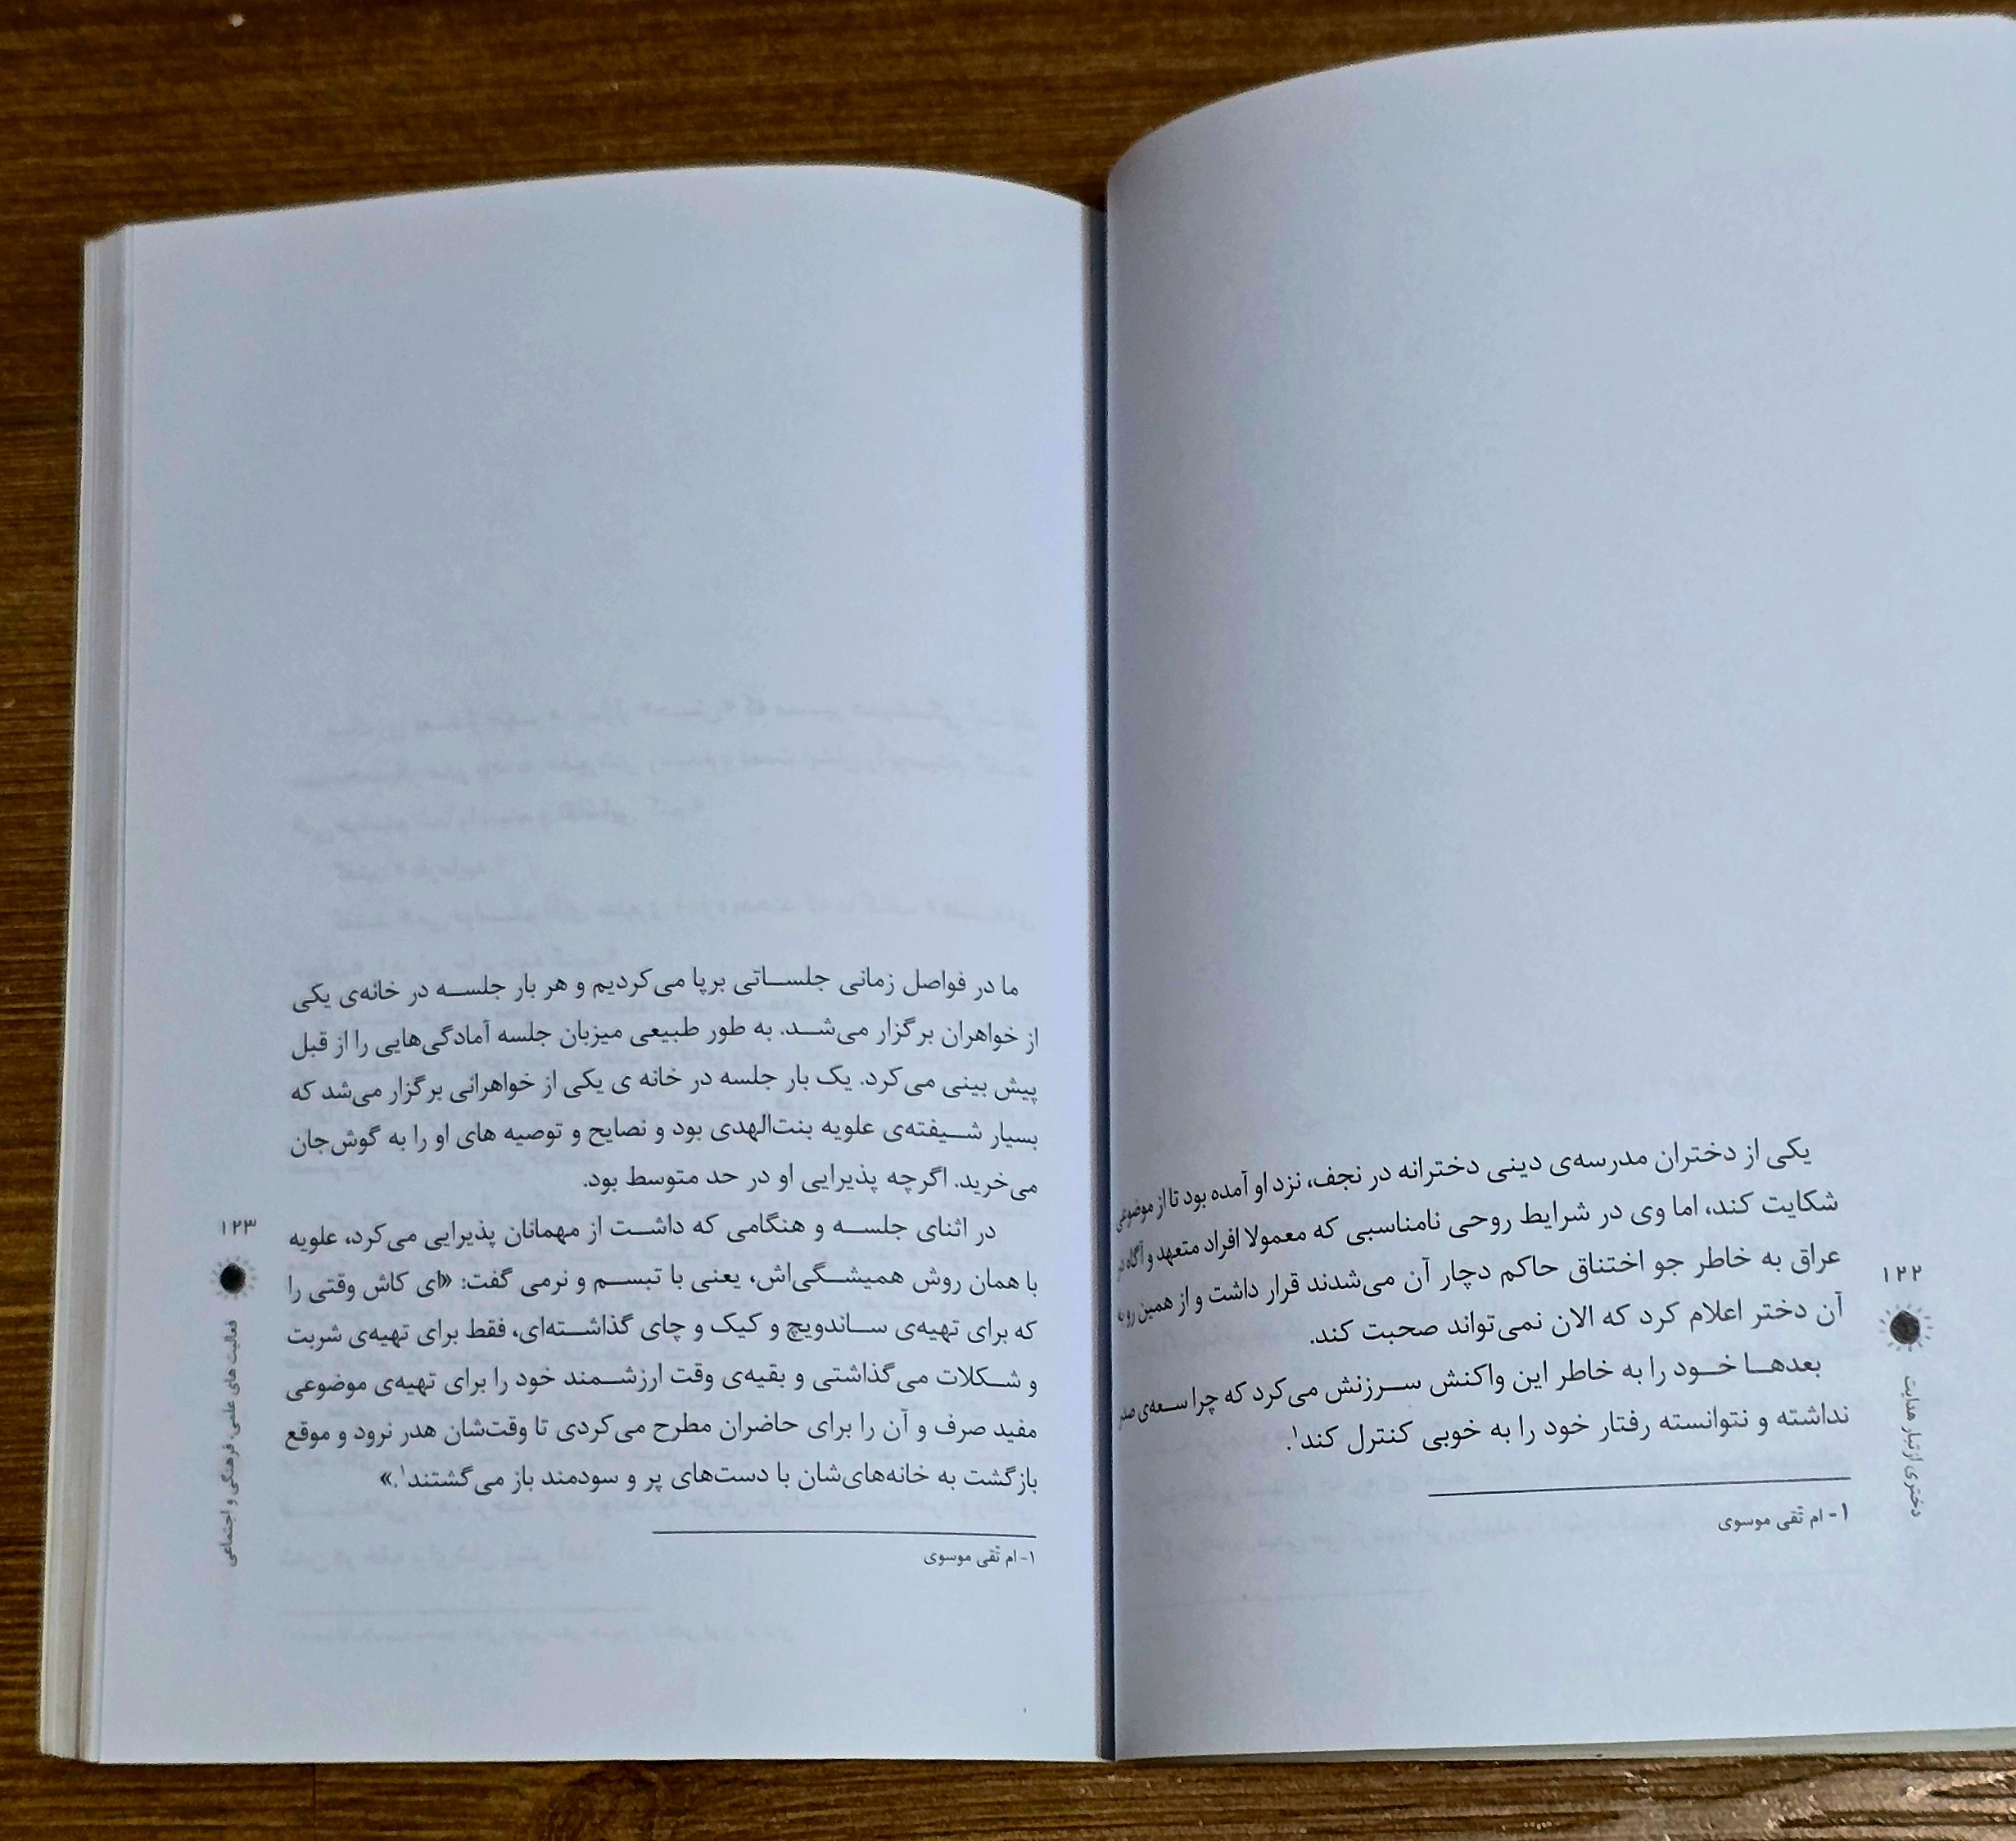 یکی از دختران مدرسه‌ی دینی دخترانه در نجف، نزد او آمده بود تا از موضوعی
شکایت کند، اما وی در شرایط روحی نامناسبی که معمولا افراد متعهد و آگاه در
عراق به خاطر جو اختناق حاکم دچار آن می‌شدند قرار داشت و از همین رو به
آن دختر اعلام کرد که الان نمی‌تواند صحبت کند.
بعدها خود را به خاطر این واکنش سرزنش می‌کرد که چرا سعه‌ی صدر
نداشته و نتوانسته رفتار خود را به خوبی کنترل کند۱.
۱- ام تقی موسوی
۱۲۲
دختری از تبار هدایت
ما در فواصل زمانی جلساتی برپا می‌کردیم و هر بار جلسه در خانه‌ی یکی
از خواهران برگزار می‌شد. به طور طبیعی میزبان جلسه آمادگی‌هایی را از قبل
پیش بینی می‌کرد. یک بار جلسه در خانه ی یکی از خواهرانی برگزار می‌شد که
بسیار شیفته‌ی علویه بنت‌الهدی بود و نصایح و توصیه های او را به گوش‌جان
می‌خرید. اگرچه پذیرایی او در حد متوسط بود.
در اثنای جلسه و هنگامی که داشت از مهمانان پذیرایی می‌کرد، علویه
با همان روش همیشگی‌اش، یعنی با تبسم و نرمی گفت: «ای کاش وقتی را
که برای تهیه‌ی ساندویچ و کیک و چای گذاشته‌ای، فقط برای تهیه‌ی شربت
و شکلات می‌گذاشتی و بقیه‌ی وقت ارزشمند خود را برای تهیه‌ی موضوعی
مفید صرف و آن را برای حاضران مطرح می‌کردی تا وقت‌شان هدر نرود و موقع
بازگشت به خانه‌های‌شان با دست‌های پر و سودمند باز می‌گشتند۱.»
۱- ام تقی موسوی
۱۲۳
فعالیت های علمی، فرهنگی و اجتماعی